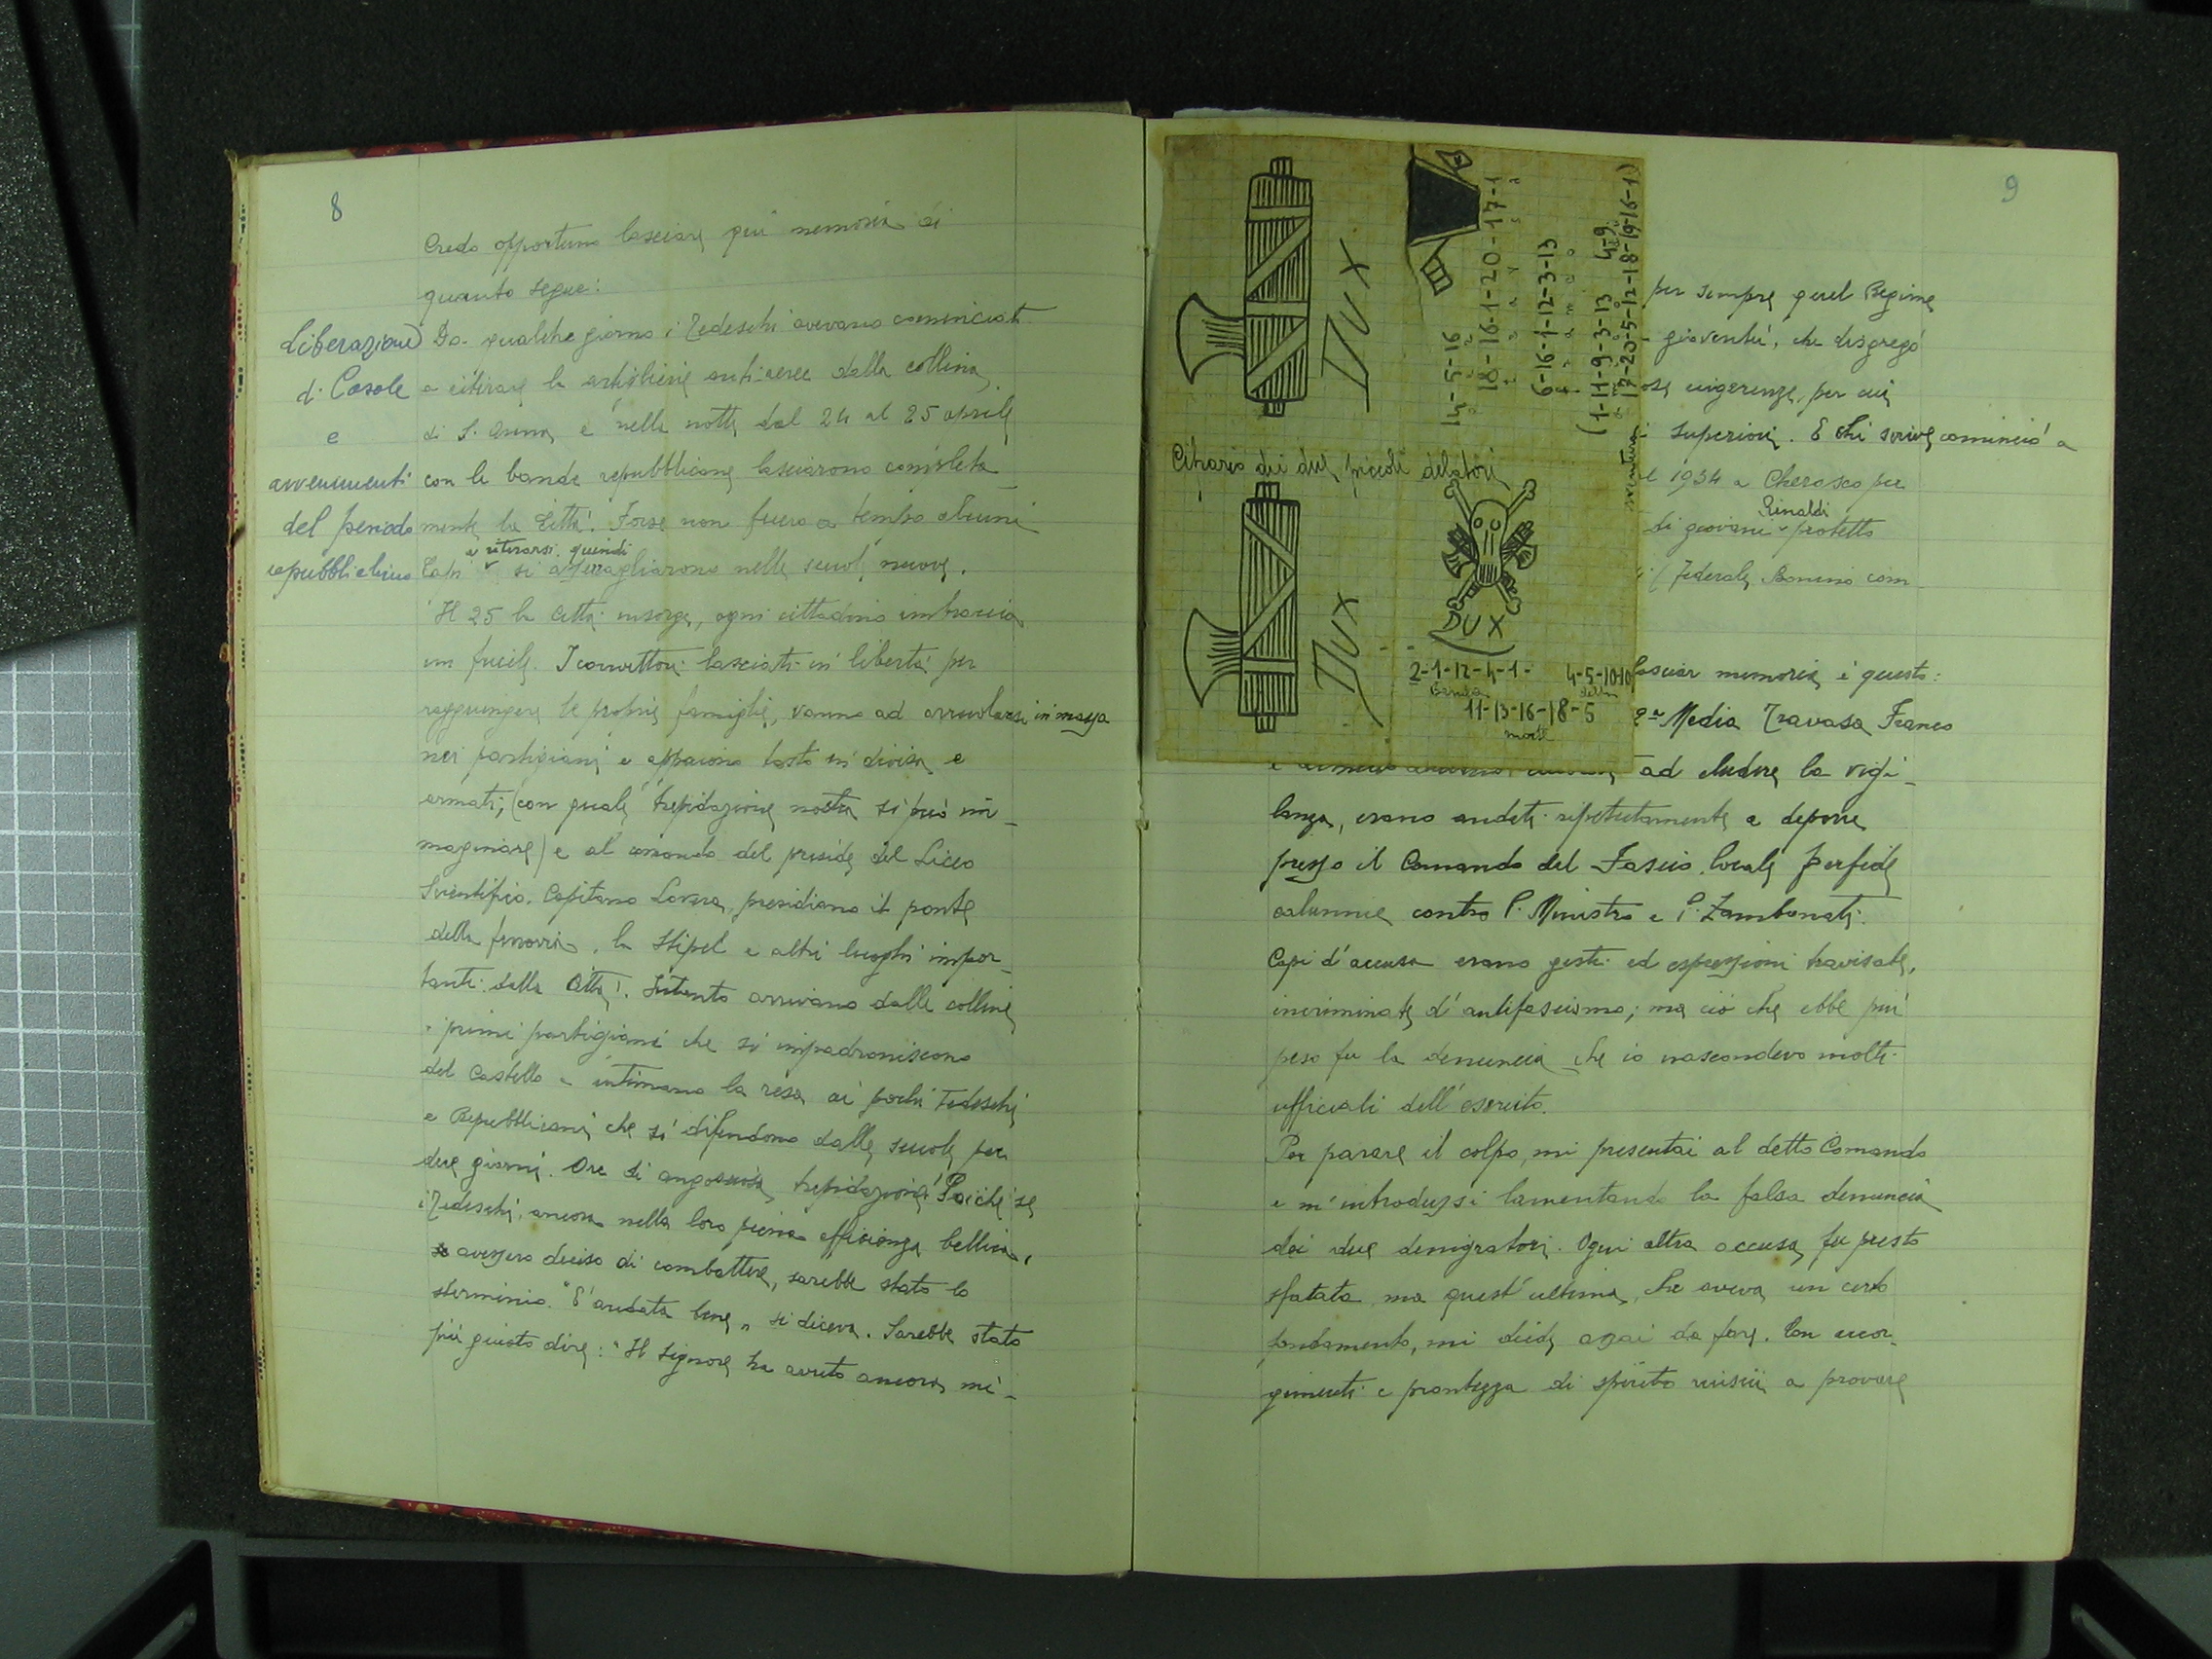 8
Credo opportuno lasciare qui memoria di
quanto segue:
Liberazione
di Casale
e
avvenimenti
del periodo
repubblichino
Da qualche giorno i Tedeschi avevano cominciato
a ritirare le artiglierie anti-aeree dalla collina
di S. Anna, e nella notte dal 24 al 25 aprile
con le bande repubblicane lasciarono completa
mente la Città. Forse non fecero a tempo alcuni
a ritirarsi, quindi
Capi si asserragliarono nelle scuole nuove.
Il 25 la città insorge, ogni cittadino imbraccia
un fucile. I convittori lasciati in libertà per
raggiungere le proprie famiglie, vanno ad arruolarsi in massa
nei partigiani e appaiono tosto in divisa e
armati, (con quale trepidazione nostra si può im-
maginare) e al comando del preside del Liceo
Scientifico, Capitano Lavera, presidiano il ponte
della ferrovia, la Stipel e altri luoghi impor-
tanti della Città. Intanto arrivano dalle colline
i primi partigiani che si impadroniscono
del Castello e intimano la resa ai pochi Tedeschi
e Repubblicani che si difendono dalle scuole per
due giorni. Ore di angosciosa trepidazione! Poiché se
i Tedeschi, ancora nella loro piena efficienza bellica,
avessero deciso di combattere, sarebbe stato lo
sterminio. "È andata bene" si diceva. Sarebbe stato
più giusto dire: "Il Signore ha avuto ancora mi-
9
DUX
14-5-16
18-16-1-20-17-1
6-16-1-12-3-13
(1-11-9-3-13 4-9
17-20-5-12-18-19-16-1)
Cifrario dei due piccoli delatori
DUX
DUX
2-1-12-4-1- 4-5-10-10
banda della
11-13-16-18-5
morte
per sempre quel Regime
gioventù, che disgregò
ose ingerenze, per cui
i superiori. E chi scrive cominciò a
el 1934 a Cherasco per
Rinaldi
di giovani protetto
il Federale Bonino com
lasciar memoria è questo:
2ª Media Travasa Franco
ad eludere la vigi-
lanza, erano andati ripetutamente a deporre
presso il Comando del Fascio locale perfide
calunnie contro P. Ministro e P. Zambonati.
Capi d'accusa erano gesti ed espressioni travisate,
incriminate d'antifascismo; ma ciò che ebbe più
peso fu la denuncia che io nascondevo molti
ufficiali dell'esercito.
Per parare il colpo, mi presentai al detto Comando
e m'introdussi lamentando la falsa denuncia
dei due denigratori. Ogni altra accusa fu presto
sfatata, ma quest'ultima, che aveva un certo
fondamento, mi diede assai da fare. Con accor-
gimenti e prontezza di spirito riuscii a provare